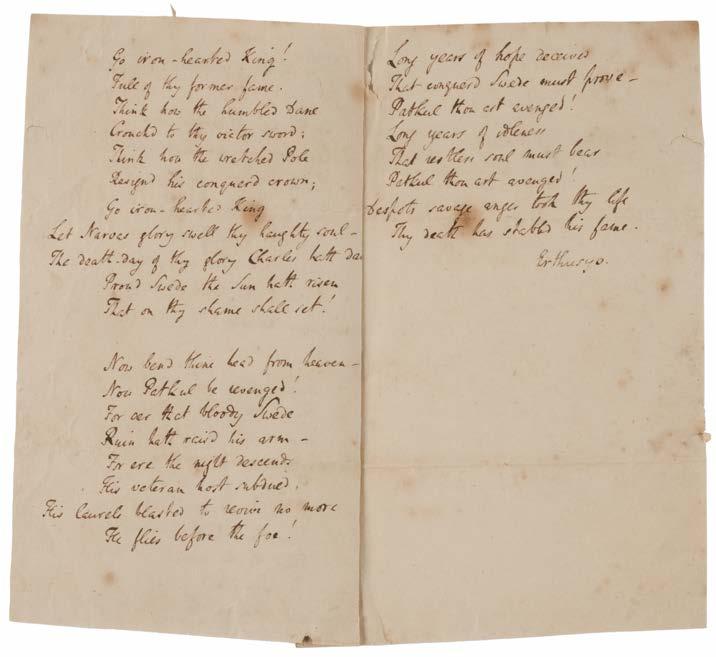 Go iron-hearted King!
Full of thy former fame.
Think how the humbled Dane
Crouchd to thy victor sword;
Think how the wretched Pole
Resignd his conquerd crown;
Go iron-hearted King
Let Narvas glory swell thy haughty soul-
The death-day of thy glory Charles hath
Proud Swede the Sun hath risen
That on thy shame shall set!
Now bend thine head from heaven-
Now Patkul be revenged!
For oer that bloody Swede
Ruin hath raisd his arm-
For ere the night descends
His veteran host subdued.
His laurels blasted to revive no more
He flies before the foe!
Long years of hope deceived
That conquerd Swede must prove-
Patkul thou art avenged!
Long years of idleness
That restless soul must bear
Patkul thou art avenged!
Despots savage anger took thy life
Thy death has stabbd his fame.
Erthusyo.